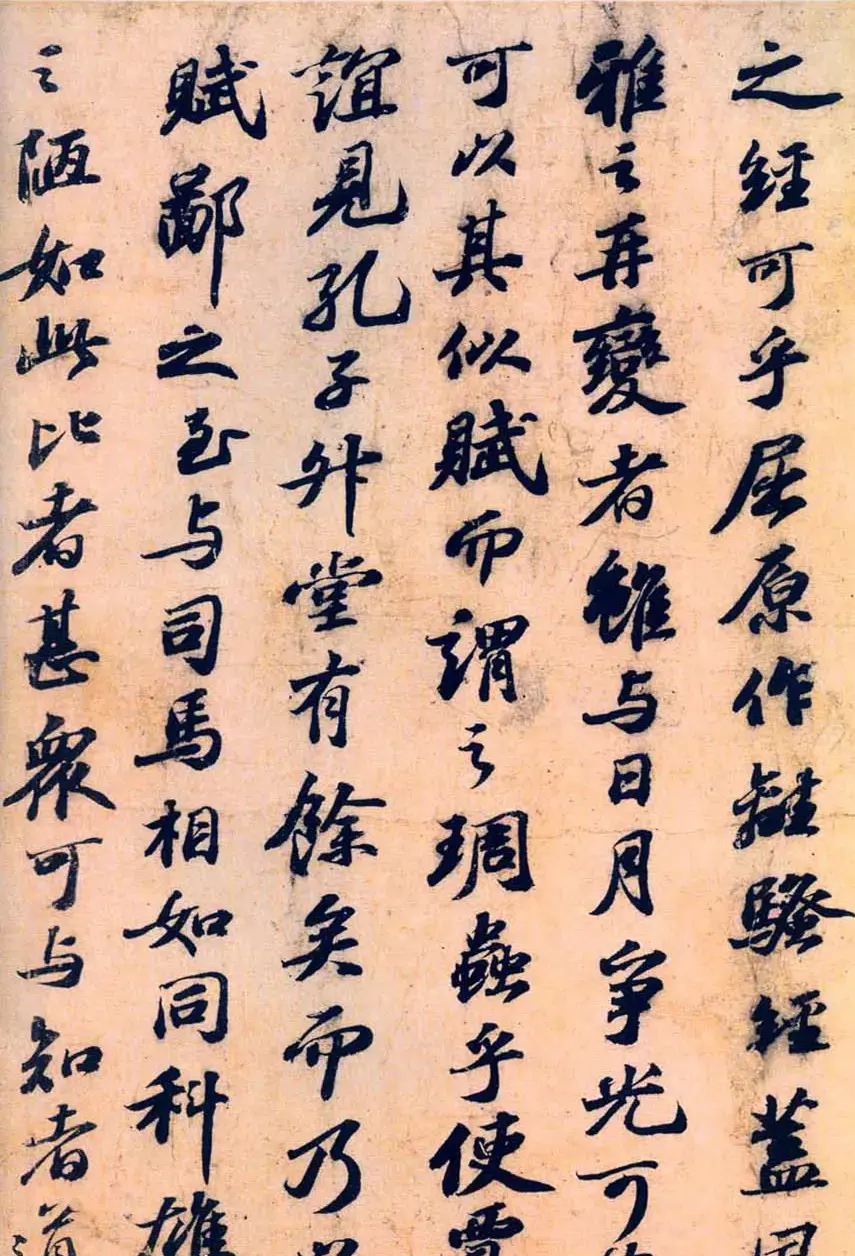 之經可乎屈原作離騷經蓋風
雅之再變者雖与日月爭光可
可以其似賦而謂之琱蟲乎使賈
誼見孔子升堂有餘矣而乃
賦鄙之至与司馬相如同科雄
之陋如此比者甚衆可与知者道